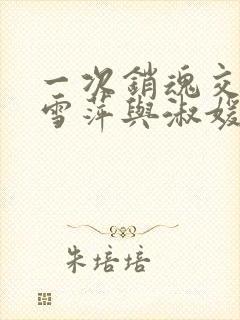 一次銷魂交
雪萍與淑媛
朱培培